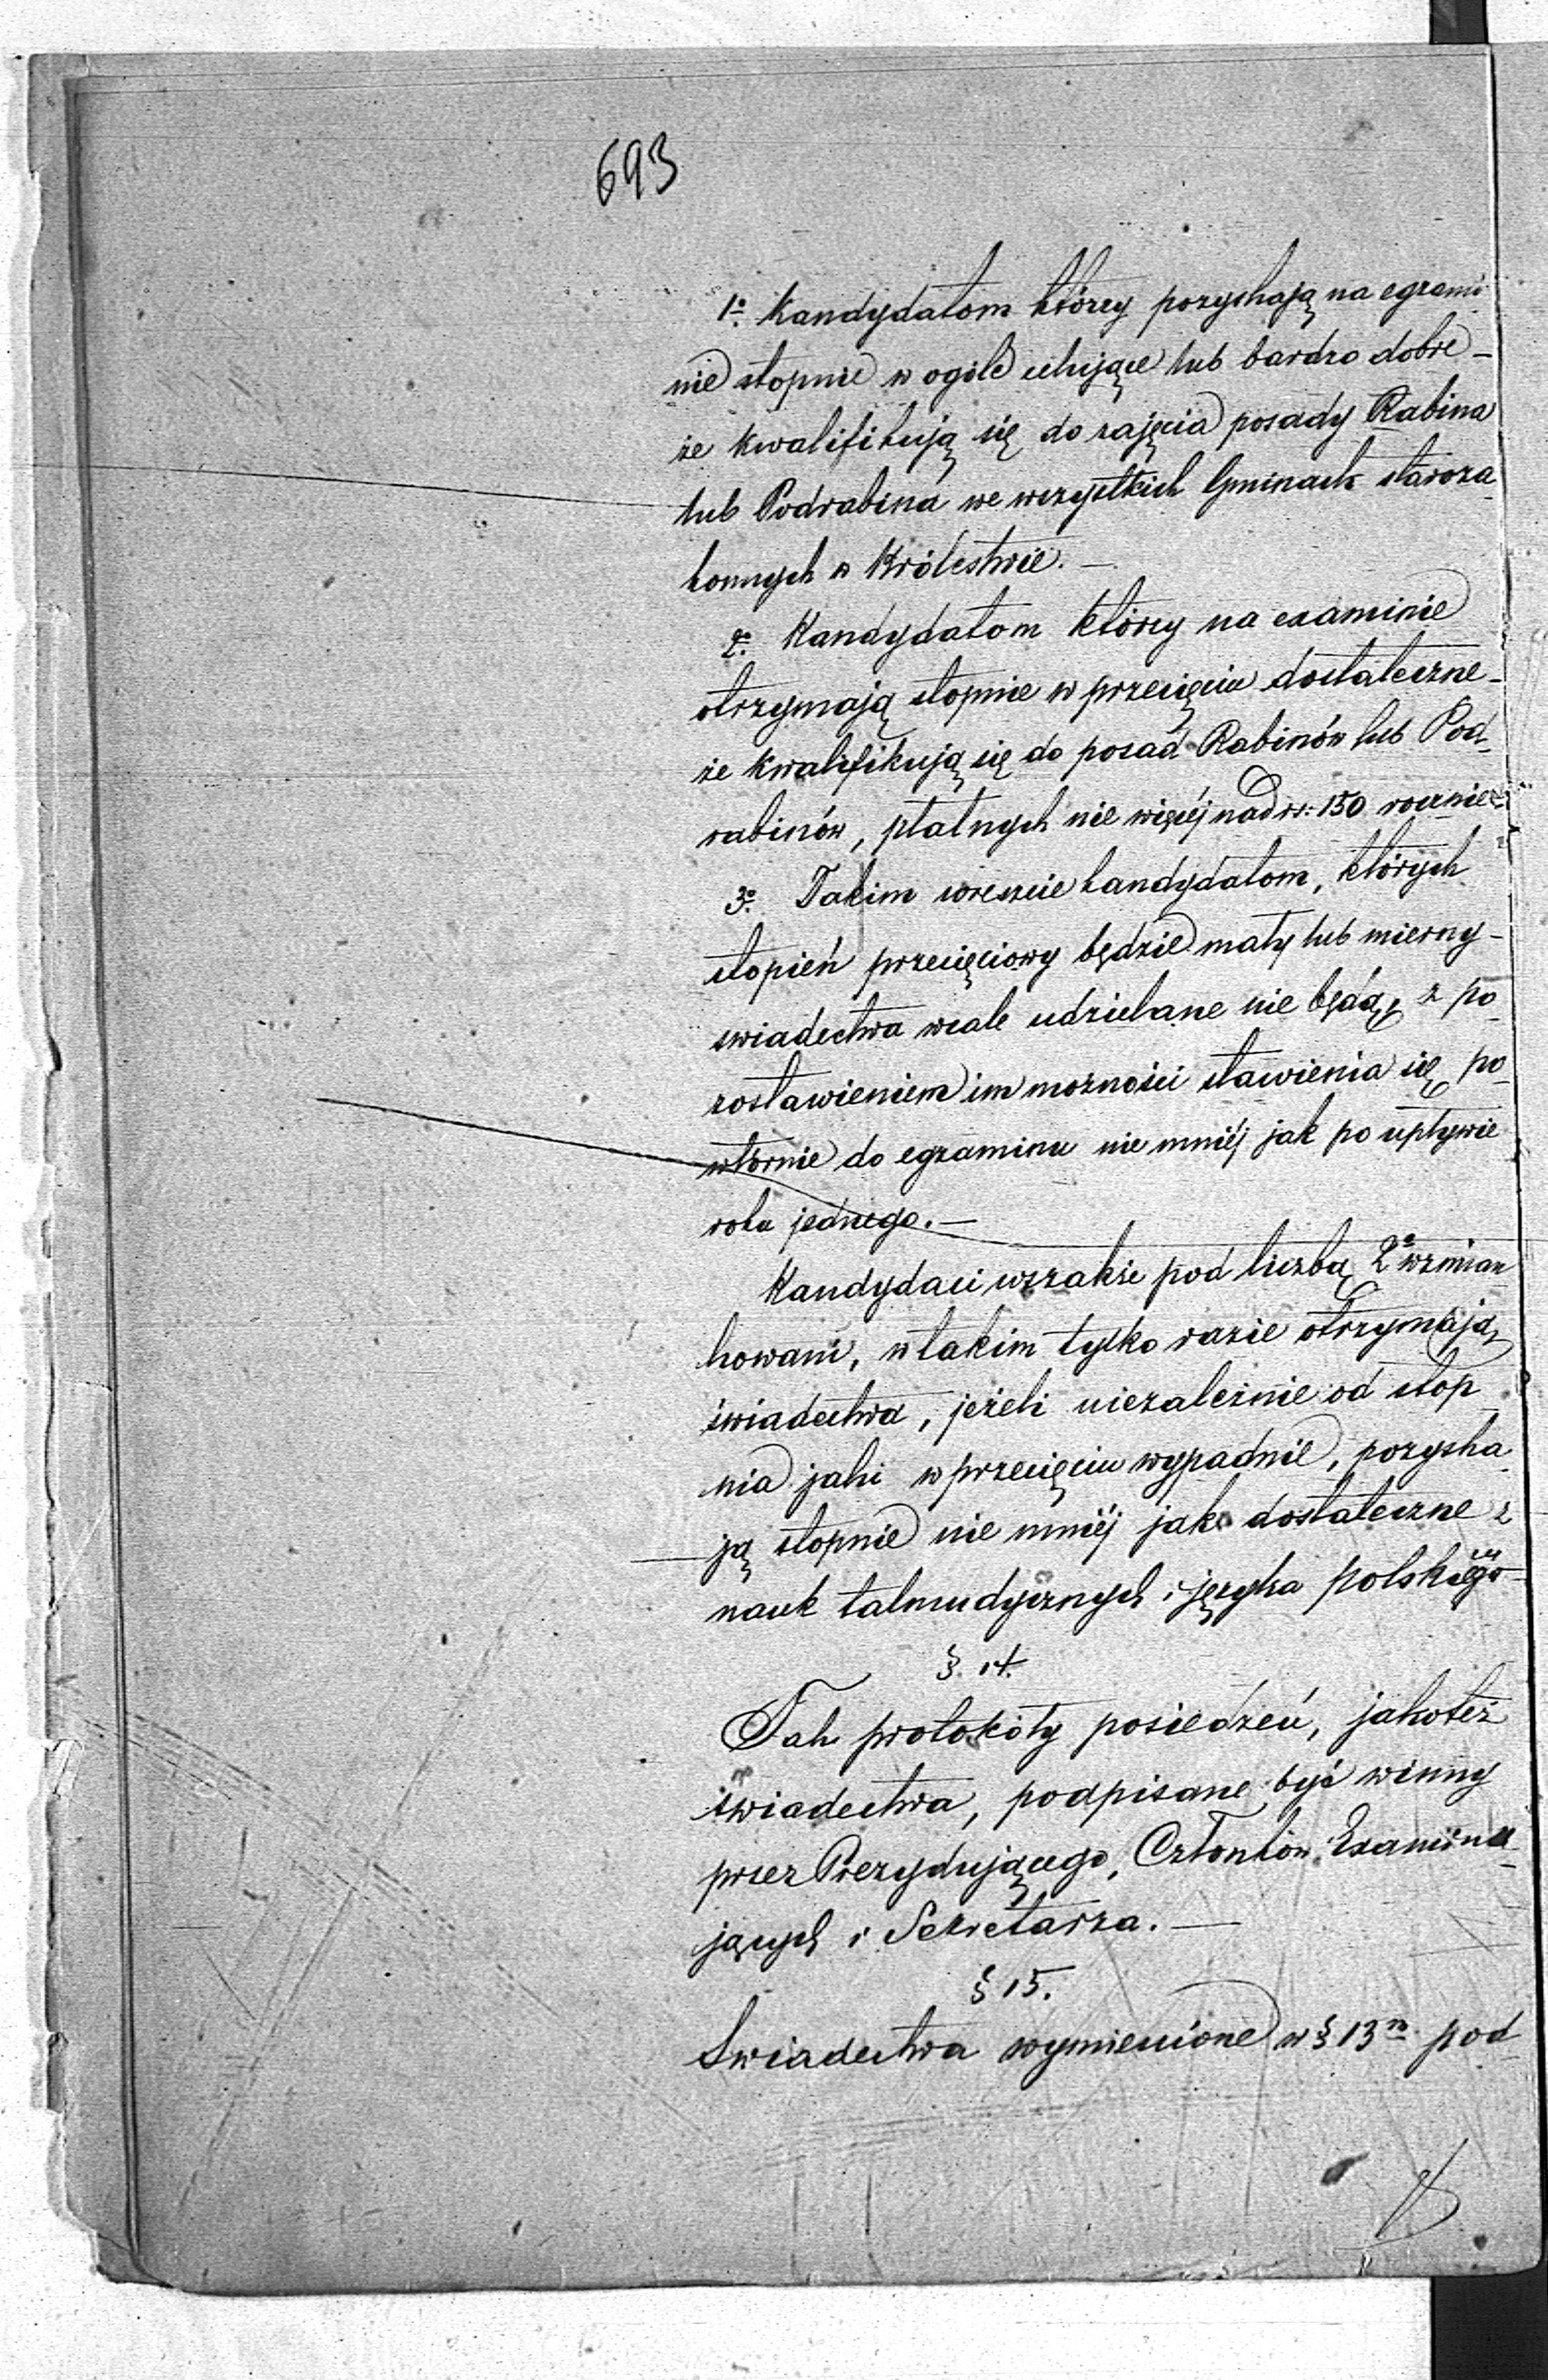 693
1º Kandydatom którzy pozyskają na egzami
nie stopnie w ogóle celujące lub bardzo dobre –
że kwalifikują się do zajęcia posady Rabina
lub Podrabina we wszystkich Gminach staroza
konnych w Królestwie. –
2º Kandydatom którzy na examinie
otrzymają stopnie w przecięciu dostateczne –
że kwalifikują się do posad Rabinów lub Pod-
rabinów, płatnych nie więcéj nad rs: 150 rocznie
3º Takim wreszcie kandydatom, których
stopień przecięciowy będzie mały lub mierny –
swiadectwa wcale udzielane nie będą, z po
zostawieniem im możności stawienia się po
wtórnie do egzaminu nie mniéj jak po upływie
roku jednego. –
Kandydaci wszakże pod liczbą 2º wzmian
kowani, w takim tylko razie otrzymają
świadectwa, jeżeli niezależnie od stop
nia jaki w przecięciu wypadnie, pozyska
ją stopnie nie mniéj jak dostateczne z
nauk talmudycznych i języka polskiego
§. 14.
Tak protokóły posiedzeń, jakoteż
świadectwa, podpisane być winny
przez Prezydującego, Członków Examinu
jących i Sekretarza. –
§ 15.
Swiadectwa wymienione w § 13m pod